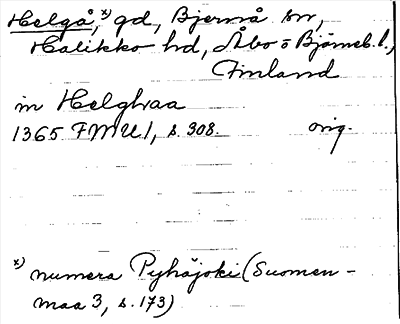 Helgå,x) gd, Bjernå sn,
Halikko hd, Åbo o Björneb. l.,
Finland
in Helghaa
1365 FMU I, s. 308. orig.
x) numera Pyhäjoki (Suomen-
maa 3, s. 173)